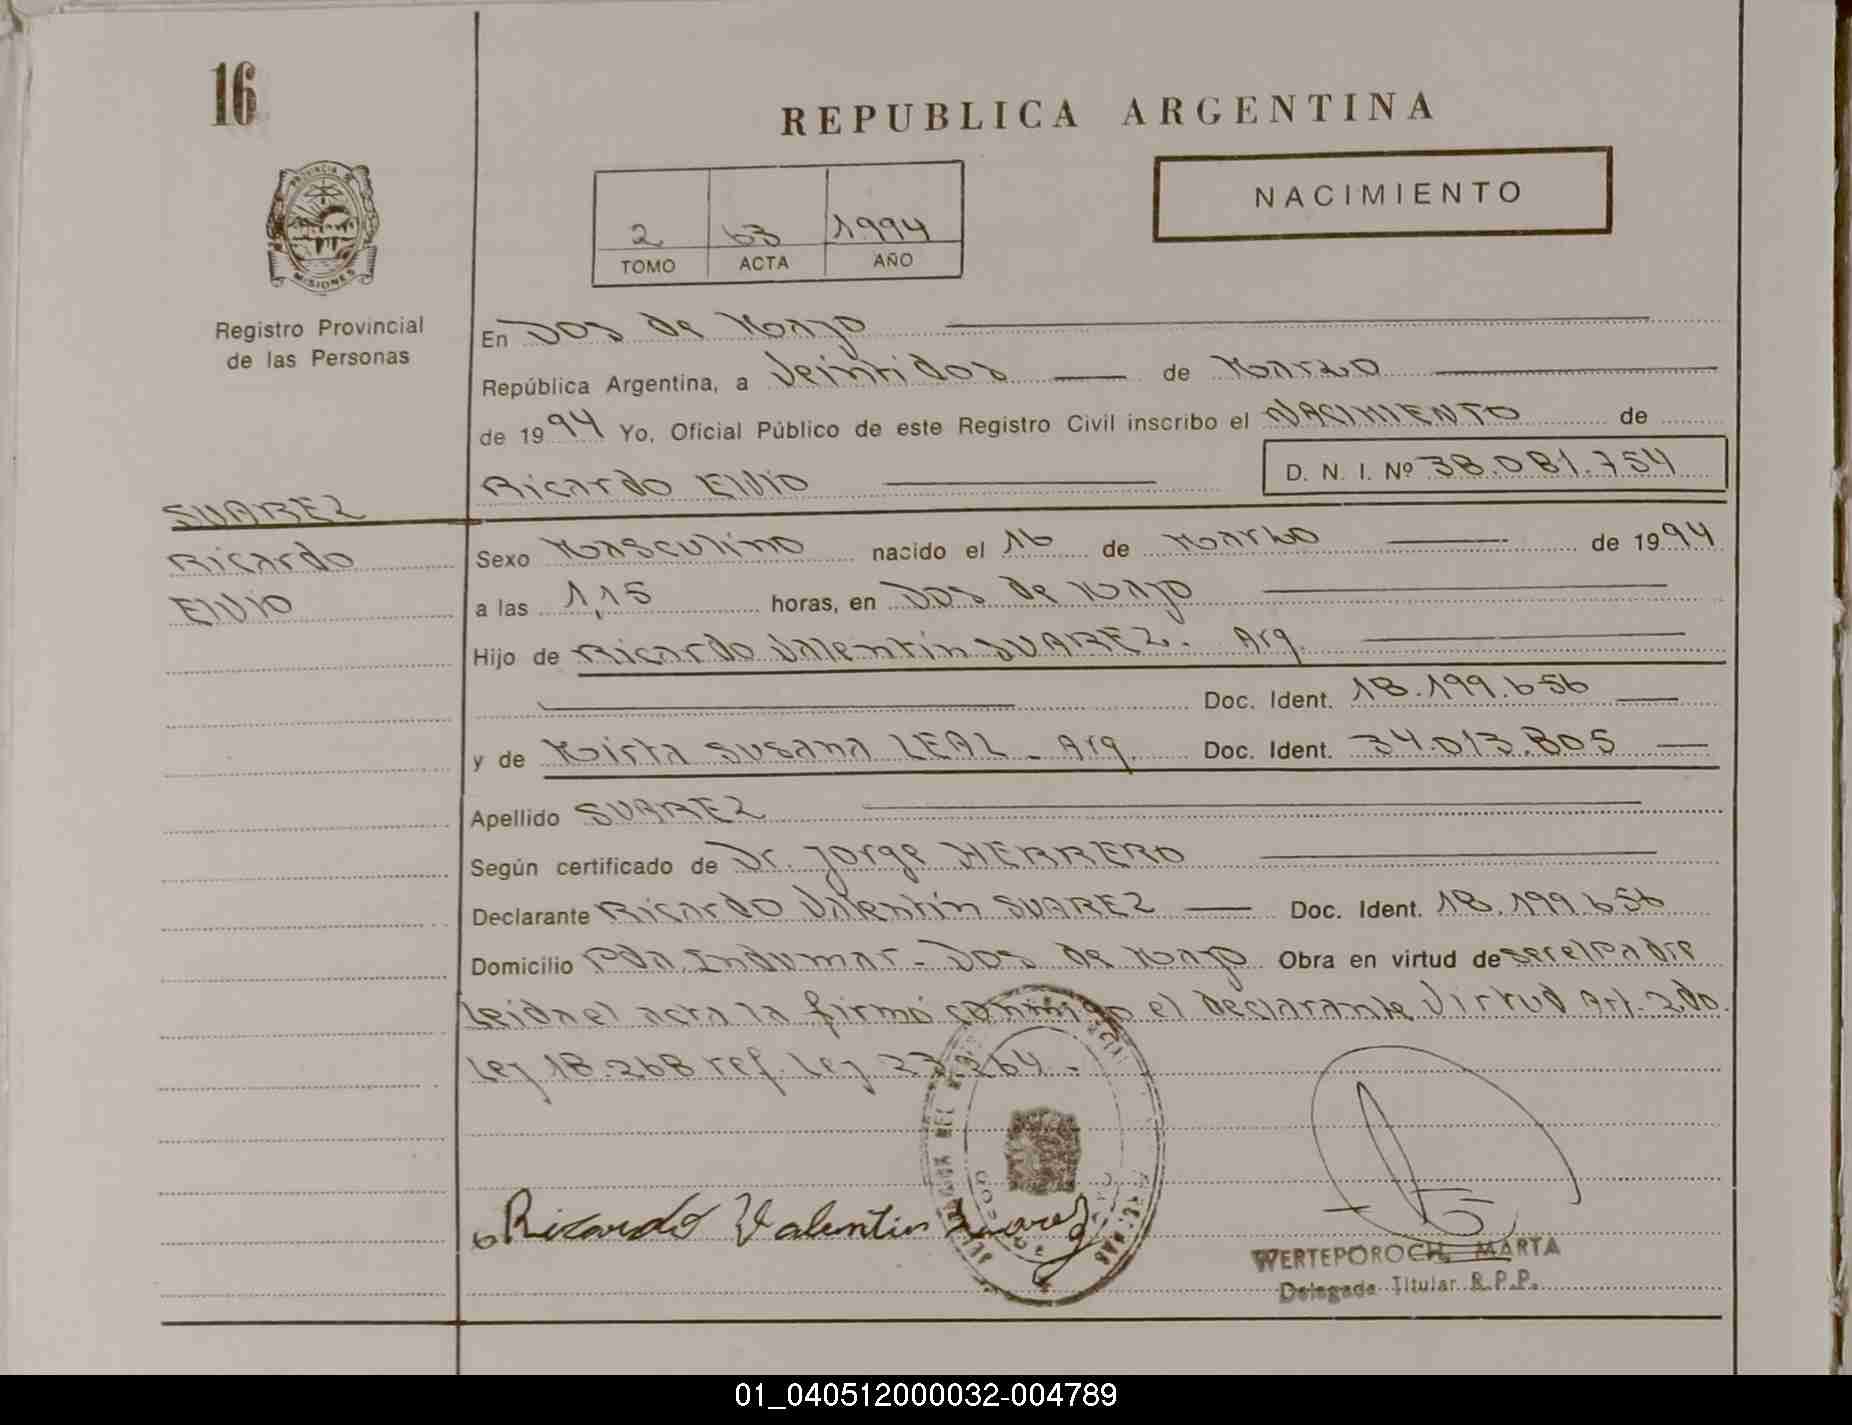 16
REPUBLICA ARGENTINA
NACIMIENTO
2 63 1994
TOMO ACTA AÑO
PROVINCIA DE
MISIONES
Registro Provincial
de las Personas
En Dos de Mayo
República Argentina, a Veintidos de Marzo
de 1994 Yo, Oficial Público de este Registro Civil inscribo el NACIMIENTO de
Ricardo Elvio D. N. I. Nº 38.081.754
SUAREZ
Ricardo
Elvio
Sexo Masculino nacido el 16 de Marzo de 1994
a las 1,15 horas, en Dos de Mayo
Hijo de Ricardo Valentín SUAREZ. Arg.
Doc. Ident. 18.199.656
y de Mirta Susana LEAL - Arg. Doc. Ident. 34.013.805
Apellido SUAREZ
Según certificado de Dr. Jorge HERRERO
Declarante Ricardo Valentín SUAREZ Doc. Ident. 18.199.656
Domicilio Pda. Indumar - Dos de Mayo Obra en virtud de ser el Padre
Leida el acta la firmó conmigo el declarante Virtud Art. 2do.
Ley 18.268 ref. Ley 23.264.-
Ricardo Valentin Suarez
WERTEPOROCH, MARTA
Delegada Titular R.P.P.
01_040512000032-004789